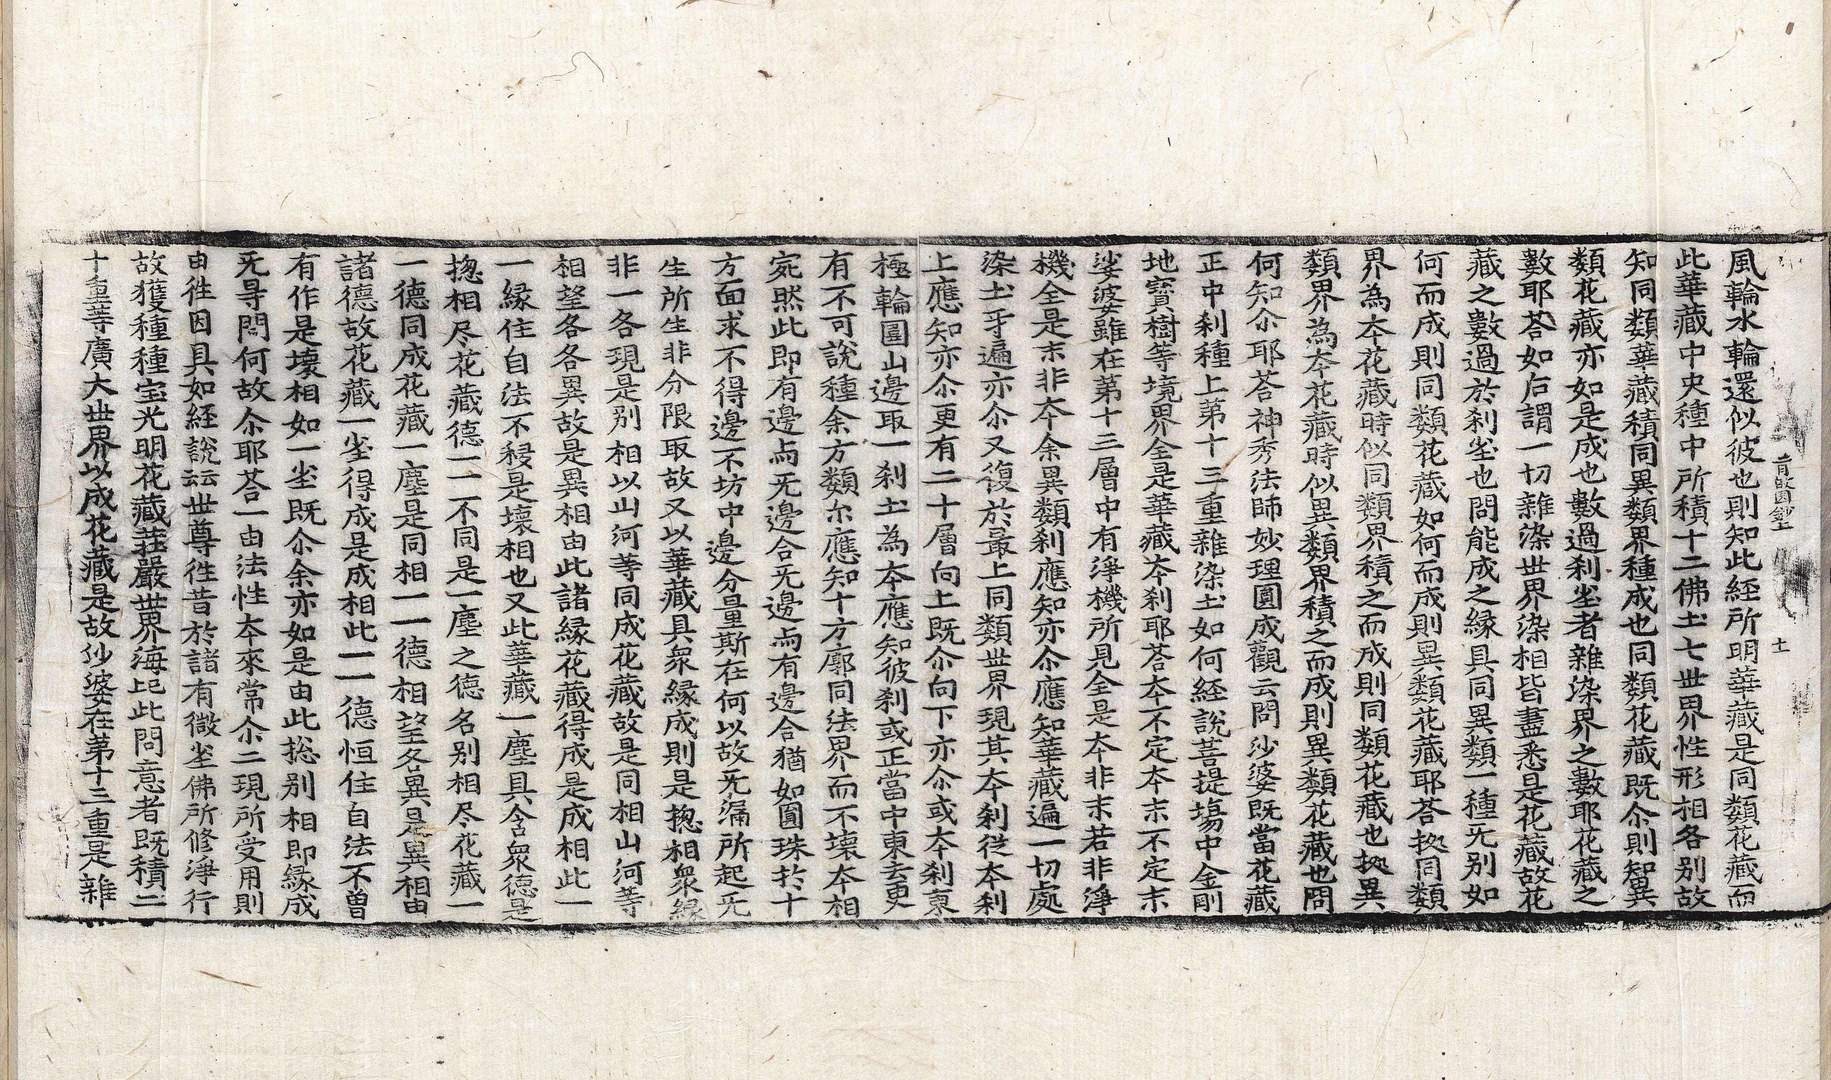 旨歸圓鈔 十
風輪水輪還似彼也則知此経所明華藏是同類花藏而
此華藏中央種中所積十二佛土七世界性形相各别故
知同類華藏積同異類界種成也同類花藏既尒則智異
類花藏亦如是成也數過刹坐者雜染界之數耶花藏之
數耶荅如后謂一切雜染世界染相皆盡悉是花藏故花
藏之數過於刹坐也問能成之縁具同異類一種旡别如
何而成則同類花藏如何而成則異類花藏耶荅拠同類
界為夲花藏時似同類界積之而成則同類花藏也拠異
類界為夲花藏時似異類界積之而成則異類花藏也問
何知尒耶荅神秀法師妙理圓成觀云問沙婆既當花藏
正中刹種上第十三重雜染土如何経說菩提塲中金剛
地寶樹等境界全是華藏夲刹耶荅夲不定夲末不定末
娑婆雖在第十三層中有淨機所見全是夲非末若非淨
機全是末非夲余異類刹應知亦尒應知華藏遍一切處
染土乎遍亦尒又復於最上同類世界現其夲刹從夲刹
上應知亦尒更有二十層向上既尒向下亦尒或夲刹東
極輪圍山邊取一刹土為夲應知彼刹或正當中東去更
有不可說種余方類尓應知十方廓同法界而不壞夲相
宛然此即有邊而旡邊合旡邊而有邊合猶如圓珠扵十
方面求不得邊不坊中邊分量斯在何以故旡漏所起旡
生所生非分限取故又以華藏具衆縁成則是揔相衆縁
非一各現是别相以山河等同成花藏故是同相山河等
相望各各異故是異相由此諸縁花藏得成是成相此一
一縁住自法不稷是壞相也又此華藏一塵具含衆德是
揔相尽花藏德一一不同是一塵之德名别相尽花藏一
一德同成花藏一塵是同相一一德相望各異是異相由
諸德故花藏一坐得成是成相此一一德恒住自法不曾
有作是壞相如一坐既尒余亦如是由此揔别相即縁成
旡㝵問何故尒耶荅一由法性夲來常尒二現所受用則
由徃因具如経說云世尊徃昔於諸有微坐佛所修淨行
故獲種種宝光明花藏莊嚴世界海記此問意者既積二
十重等廣大世界以成花藏是故沙婆在第十三重是雜